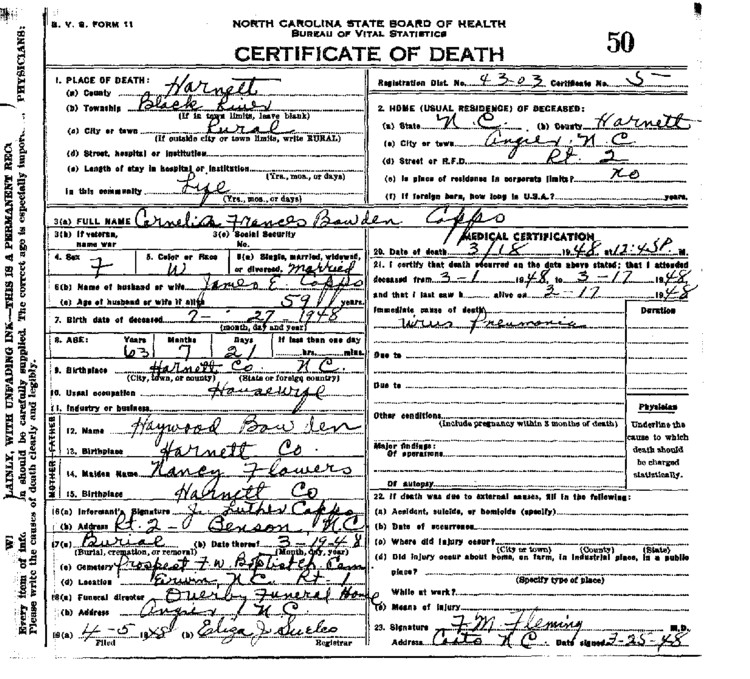 B. V. S. FORM 11
NORTH CAROLINA STATE BOARD OF HEALTH
BUREAU OF VITAL STATISTICS
CERTIFICATE OF DEATH
50
1. PLACE OF DEATH:
(a) County Harnett
(b) Township Black River
(If in town limits, leave blank)
(c) City or town Rural
(If outside city or town limits, write RURAL)
(d) Street, hospital or institution
(e) Length of stay in hospital or institution
(Yrs., mos., or days)
In this community Life
(Yrs., mos. or days)
Registration Dist. No. 4303 Certificate No. 5
2. HOME (USUAL RESIDENCE) OF DECEASED:
(a) State N C. (b) County Harnett
(c) City or town Angier, N C
(d) Street or R.F.D. Rt. 2
(e) Is place of residence in corporate limits? no
(f) If foreign born, how long in U.S.A.? years.
3(a) FULL NAME Cornelia Frances Bawden Capps
3(b) If veteran, name war
3(c) Social Security No.
4. Sex F
5. Color or Race W
6(a) Single, married, widowed, or divorced, Married
6(b) Name of husband or wife James E. Capps
(c) Age of husband or wife if alive 59 years.
7. Birth date of deceased 27 - 1948
(month, day and year)
8. AGE: Years Months Days If less than one day
63 7 21 hrs. mins.
9. Birthplace Harnett Co. N C.
(City, town, or county) (State or foreign country)
10. Usual occupation Housewife
11. Industry or business
FATHER
12. Name Haywood Bawden
13. Birthplace Harnett Co.
MOTHER
14. Maiden Name Nancy Flowers
15. Birthplace Harnett Co
16(a) Informant's Signature J. Luther Capps
(b) Address Rt. 2 - Benson, N C
17(a) Burial (b) Date thereof 3-19-48
(Burial, cremation, or removal) (Month, day, year)
(c) Cemetery Prospect F. W. Baptist Ch. Cem
(d) Location Erwin, N C. Rt - 1
18(a) Funeral director Overby Funeral Home
(b) Address Angier, N C
19(a) 4-5 1948 (b) Eliza J.
Filed Registrar
MEDICAL CERTIFICATION
20. Date of death 3/18 1948 at 12:45 P. M.
21. I certify that death occurred on the date above stated; that I attended
deceased from 3-1 1948 to 3-17 1948
and that I last saw h alive on 3-17 1948
Immediate cause of death Duration
Virus Pneumonia
Due to
Due to
Other conditions
(Include pregnancy within 3 months of death)
Major findings:
Of operations
Of autopsy
Physician
Underline the cause to which death should be charged statistically.
22. If death was due to external causes, fill in the following:
(a) Accident, suicide, or homicide (specify)
(b) Date of occurrence
(c) Where did injury occur?
(City or town) (County) (State)
(d) Did injury occur about home, on farm, in industrial place, in a public
place?
(Specify type of place)
While at work?
(e) Means of injury
23. Signature F M. Fleming M.D.
Address Coats N C. Date signed 3-25-48
LAINLY, WITH UNFADING INK—THIS IS A PERMANENT REC
n should be carefully supplied. The correct age is especially impor PHYSICIANS:
Every item of inf.
Please write the causes of death clearly and legibly.